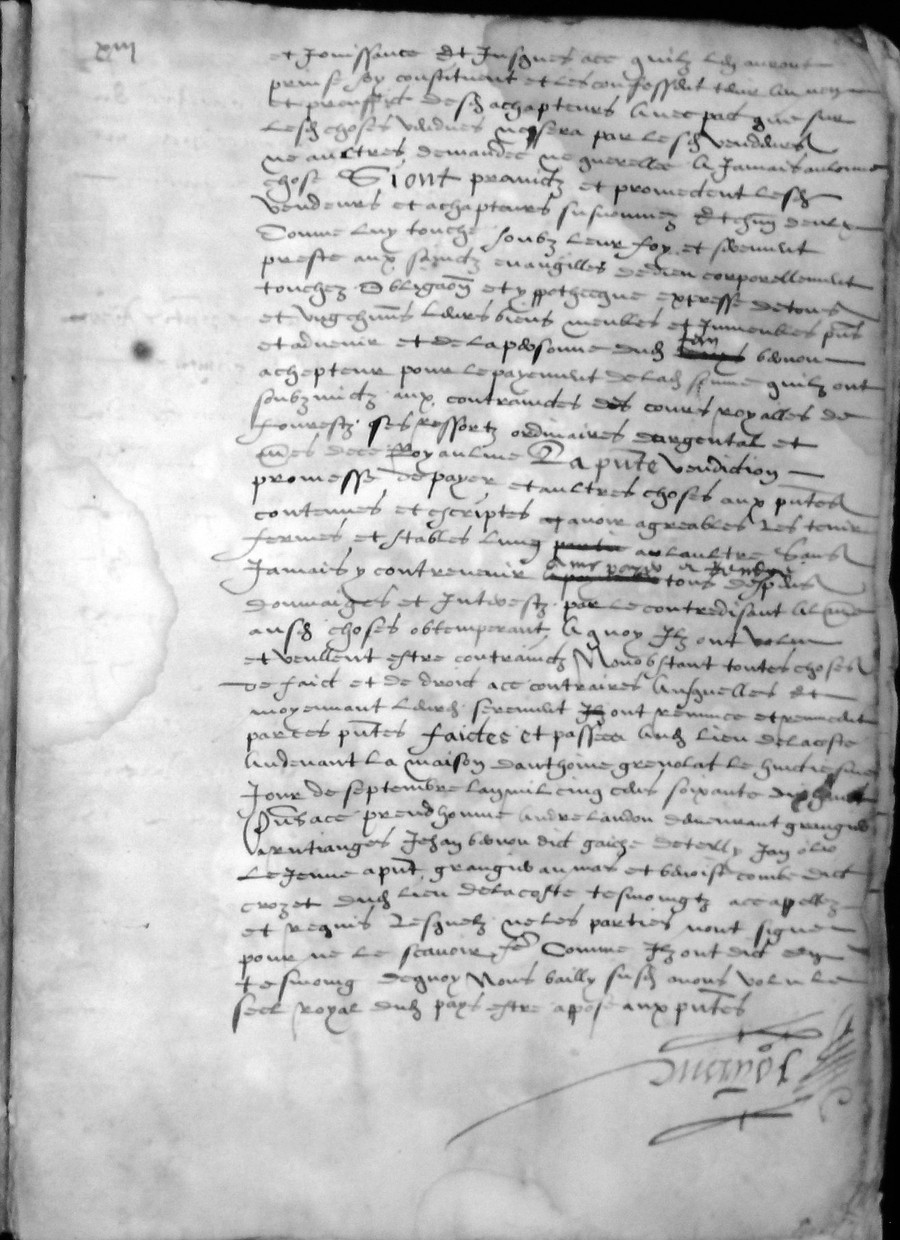 xiii
et Jouissance et Jusques ace quilz len auront
prinse soy constituent et les confessent tenir au nom
et prouffit desd achapteurs avec pac que sur
lesd choses vendues ne sera par lesd vendeurs
ne aultres demandee ne querellee a Jamais aulcune
chose Si ont promictz et promectent lesd
vendeurs et achapteurs susnommez et chun deulx
comme luy touche soubz leur foy et serement
preste aux sainctz euangilles de dieu corporellement
touchez Obligaon et yppothecque expresse de tous
et ungchuns leurs biens meubles et Jmmeubles pns
et aduenir et de la personne dud benon
achepteur pour le payement de lad somme quilz ont
soubzmictz aux contrainctes des cours royalles de
fourestz ses ressortz ordinaires dargental et
de ce Royaulme La pnte vendicion
promesse de payer et aultres choses aux pntes
contenues et escriptes avoir agreables Les tenir
fermes et stables lung a laultre sans
Jamais y contrevenir tous despens
dommaiges et Interestz par le contredisant al
ausd choses obtemperant A quoy Ilz ont volu
et veullent estre contrainctz Nonobstant toutes choses
de faict et de droict ace contraires Ausquelles et
moyennant leurd serement ont renunce et renuncent
par ces pntes faictes et passees Aud lieu de lacoste
Audevant la maison danthoine grenolat le huictiesme
Jour de septembre lan mil cinq cens soixante dix
Pns ace preudhomme Andre landon demeurant
Jehan benon dict gaiche Jan
Le Jeune et benoist combe dict
crozet dud lieu de lacoste tesmoingtz ace appellez
et requis Lesquelz ne les parties nont signe
pour ne le scavoir fe Comme Ilz ont dict En
tesmoing dequoy Nous bailly susd avons volu le
seel royal dud pays estre appose aux pntes